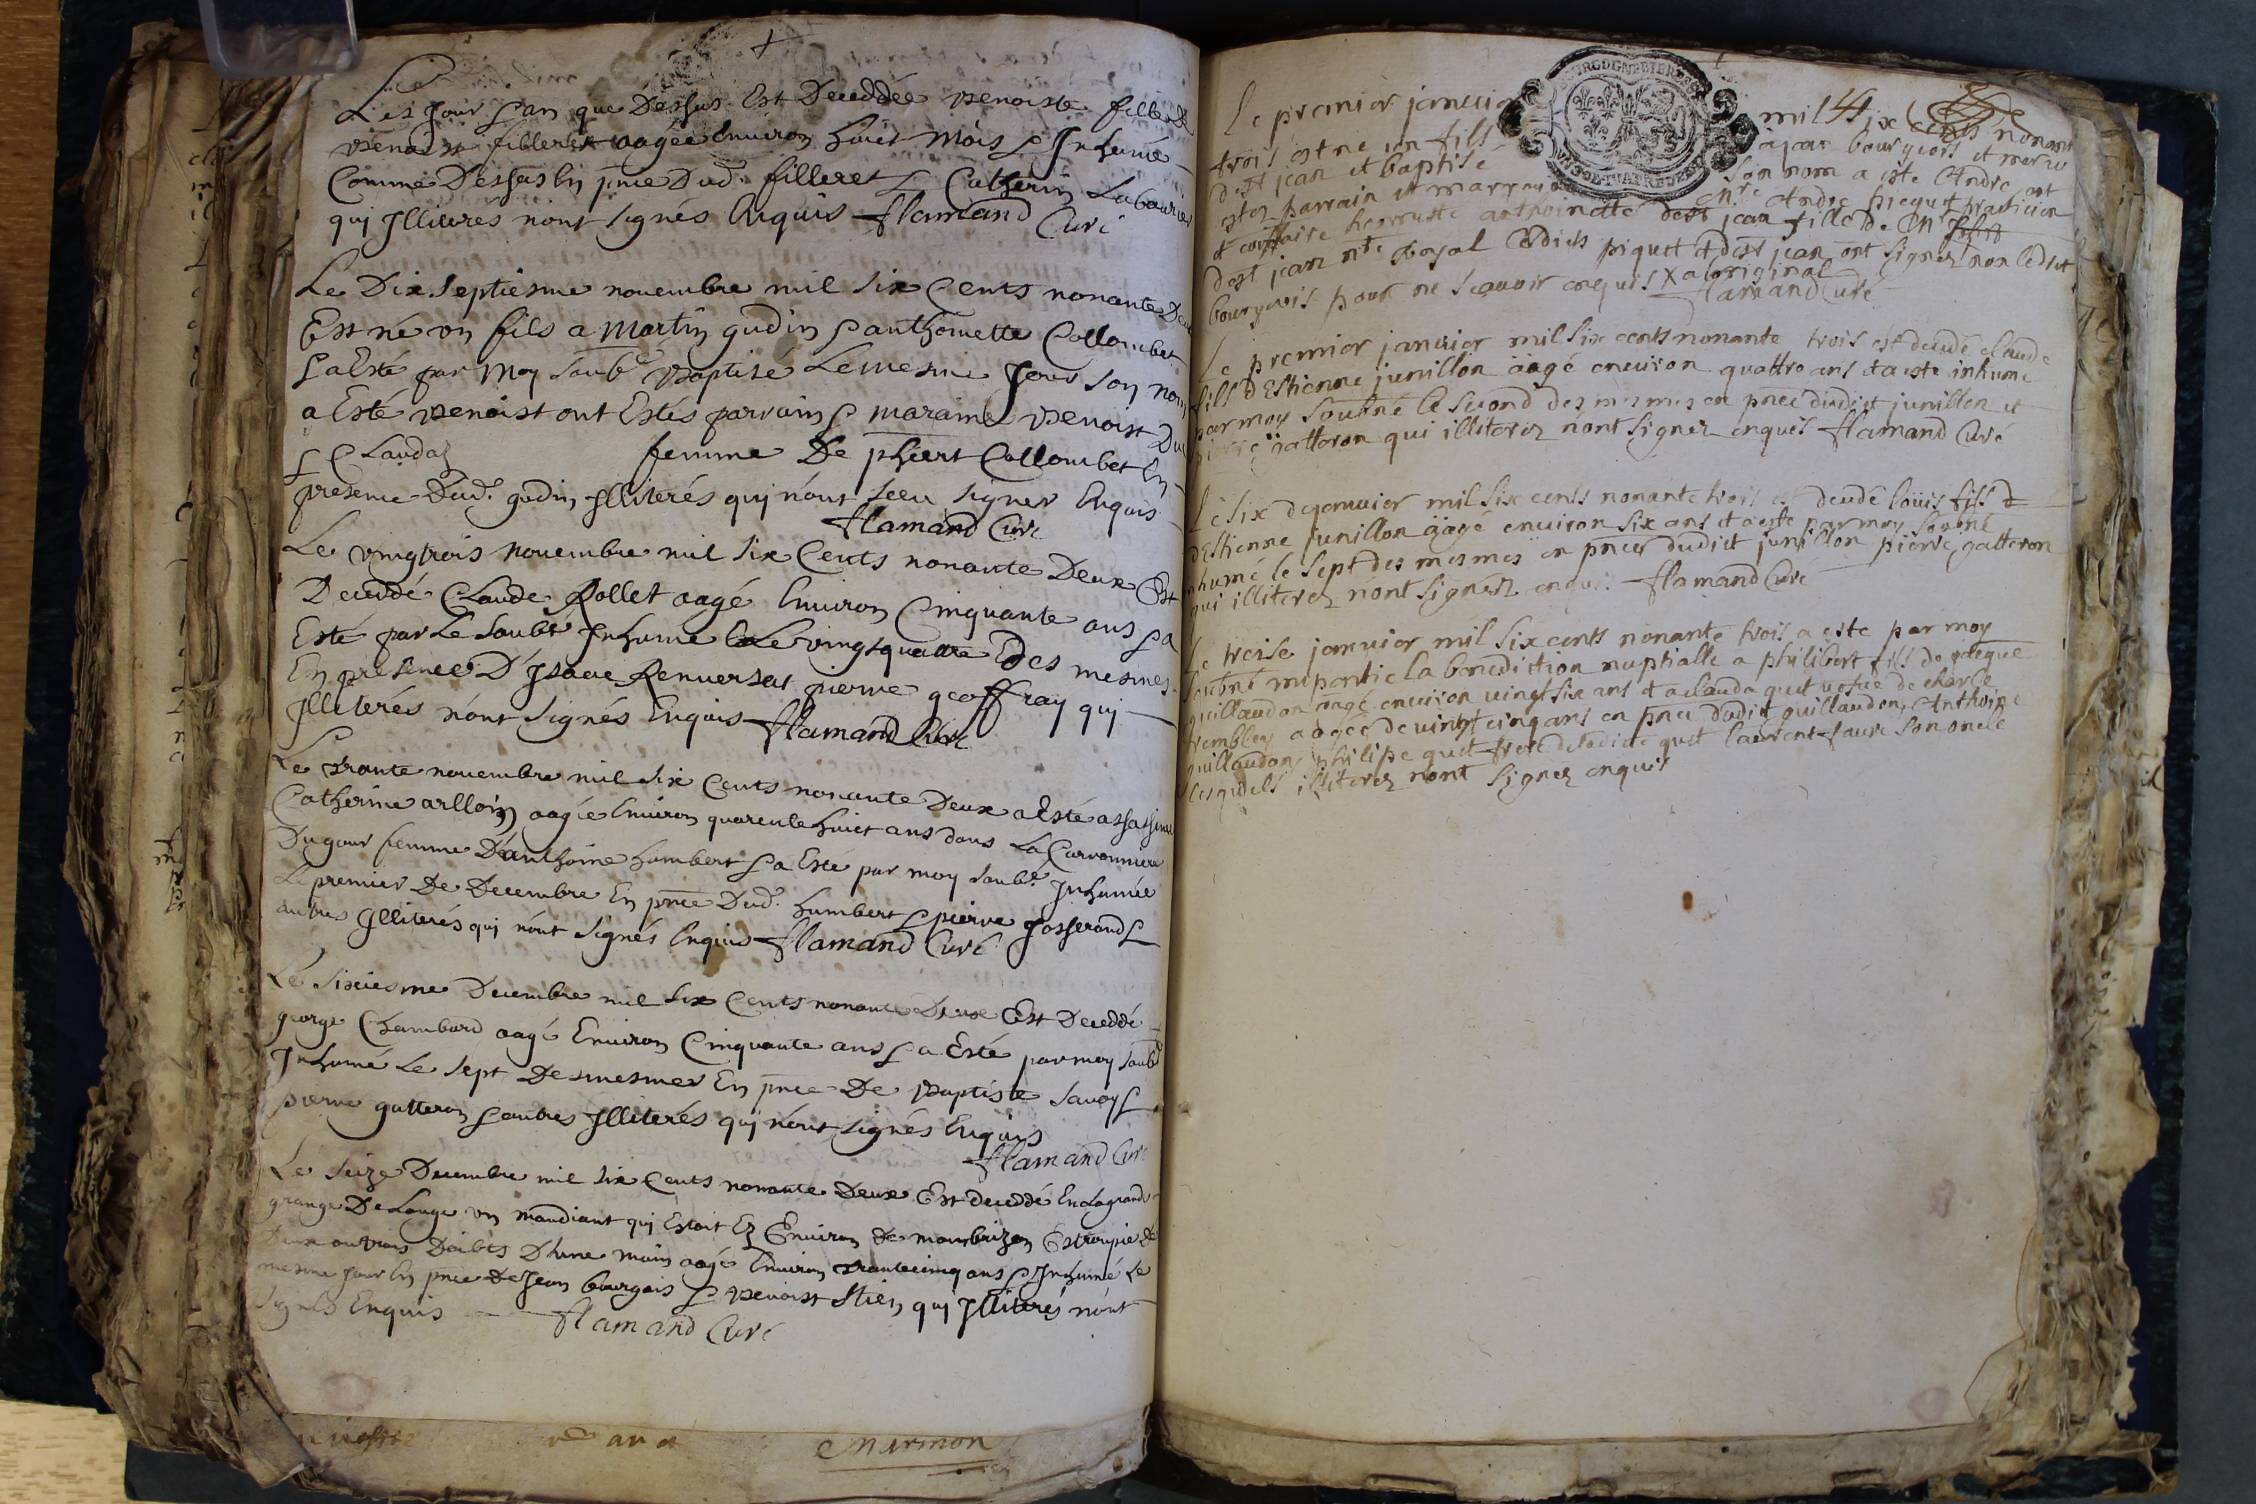 Les Jour & an que Dessus Est Deceddée Benoiste fille de
Benoist filleret aagée Environ huict Mois & Inhumé
Comme Dessus En pnce Dud. filleret & Catherin Labourier
qui Illiterés n'ont signés Enquis flamand Curé
Le Dix septiesme novembre mil six Cents nonante Deux
Est né vn fils a Martin gudin & anthoinette Collombet
& a Esté par Moy soubé Baptisé Le mesme Jour son nom
a Esté Benoist ont Estés parrain & maraine Benoist
& Clauda femme De phibert Collombet En
presence Dud. gudin Illiterés qui n'ont sceu signer Enquis
flamand Curé
Le vingtrois novembre mil six Cents nonante Deux Est
Deceddé Claude Rollet aagé Environ Cinquante ans & a
Esté par Le soubs Inhumé Le vingtquattre Des mesmes
En presence D'Isaac Renversat pierre geoffray qui
Illiterés n'ont signés Enquis flamand Curé
Le trante novembre mil six Cents nonante Deux a Esté assassinée
Catherine arlloin aagée Environ quarente huict ans dans La Carronniere
Dugour femme D'anthoine humbert & a Esté par moy soubé Inhumée
Le premier De Decembre En pnce Dud. humbert & pierre Josserand &
autres Illiterés qui n'ont signés Enquis flamand Curé
Le sixiesme Decembre mil six Cents nonante Deux Est Deceddé
george Chambard aagé Environ Cinquante ans & a Esté par moy soubé
Inhumé Le sept Des mesmes En pnce De Baptiste savoy &
pierre gatteron & autres Illiterés qui n'ont signés Enquis
flamand Curé
Le seize Decembre mil six Cents nonante Deux Est deceddé En La grande
grange De Longe vn mandiant qui Estoit Ez Environ de montbrizon Estropié de
Deux ou trois Doibts D'une main aagé Environ trantecinq ans & Inhumé Le
mesme Jour En pnce De Jean bourgois & Benoist Stien qui Illiterés n'ont
signés Enquis flamand Curé
Marmon
Le premier januier mil six cents nonant
trois est ne un fils a jean bourgeois et
dest jean et baptisé son nom a este Andre ont
estes parrain et marrayne mre Andre piquet practicien
et anthoinette dest jean fille de mre
dest jean nre Royal Lesdicts piquet et dest jean ont signez non ledict
bourgeois pour ne scauoir enquis a loriginal
flamand Curé
Le premier januier mil six cents nonante trois est decedé claude
fils D'Estienne junillon aagé enuiron quattro ans et a este inhumé
par moy soubné le second des mesmes en pnce dudict junillon et
pierre gatteron qui illiterez n'ont signez enquis flamand Curé
Le six de januier mil six cents nonante trois est decedé loüis fils
D'Estienne junillon aagé enuiron six ans et a este par moy soubné
inhumé le sept des mesmes en pnce dudict junillon pierre gatteron
qui illiterez n'ont signez enquis flamand Curé
Le treise januier mil six cents nonante trois a este par moy
soubné imparti la benediction nuptialle a philibert fils de
guillaudon aagé enuiron vingt six ans et a clauda guet vefue de charle
trembley aagée de vingt cinq ans en pnce dudict guillaudon, Anthoine
guillaudon philipe guet frere de ladicte guet laurent faure son oncle
lesquels illiterez n'ont signez enquis